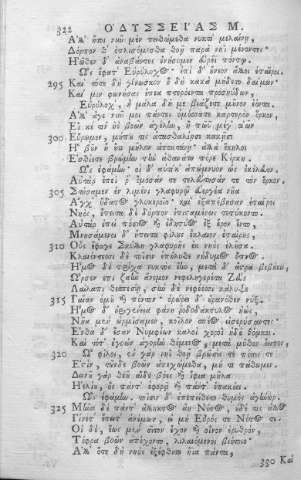 322 ΟΔΥΣΣΕΙΑΣ Μ.
Ἀλλ' ἤτοι νῦν μὲν πειθώμεθα νυκτὶ μελαίνῃ,
Δόρπον θ' ὁπλισόμεσθα θοῇ παρὰ νηῒ μένοντες·
Ἠῶθεν δ' ἀναβάντες ἐνήσομεν εὐρέϊ πόντῳ.
Ὣς ἔφατ' Εὐρύλοχος· ἐπὶ δ' ᾔνεον ἄλλοι ἑταῖροι.
295 Καὶ τότε δὴ γίνωσκον ὃ δὴ κακὰ μήδετο δαίμων·
Καί μιν φωνήσας ἔπεα πτερόεντα προσηύδων,
Εὐρύλοχ', ἦ μάλα δή με βιάζετε μοῦνον ἐόντα.
Ἀλλ' ἄγε νῦν μοι πάντες ὀμόσσατε καρτερὸν ὅρκον,
Εἴ κέ τιν' ἠὲ βοῶν ἀγέλην, ἢ πῶϋ μέγ' οἰῶν
300 Εὕρωμεν, μήπου τις ἀτασθαλίῃσι κακῇσιν
Ἢ βοῦν ἠέ τι μῆλον ἀποκτάνῃ· ἀλλὰ ἕκηλοι
Ἐσθίετε βρώμην τὴν ἀθανάτη πόρε Κίρκη.
Ὣς ἐφάμην· οἱ δ' αὐτίκ' ἀπώμνυον ὡς ἐκέλευον.
Αὐτὰρ ἐπεί ῥ' ὄμοσάν τε τελεύτησάν τε τὸν ὅρκον,
305 Στήσαμεν ἐν λιμένι γλαφυρῷ εὐεργέα νῆα
Ἄγχ' ὕδατος γλυκεροῖο· καὶ ἐξαπέβησαν ἑταῖροι
Νηός, ἔπειτα δὲ δόρπον ἐπισταμένως τετύκοντο.
Αὐτὰρ ἐπεὶ πόσιος καὶ ἐδητύος ἐξ ἔρον ἕντο,
Μνησάμενοι δ' ἤπειτα φίλους ἔκλαιον ἑταίρους,
310 Οὓς ἔφαγε Σκύλλη γλαφυρῆς ἐκ νηὸς ἑλοῦσα.
Κλαιόντεσσι δὲ τοῖσιν ἐπήλυθε νήδυμος ὕπνος.
Ἦμος δὲ τρίχα νυκτὸς ἔην, μετὰ δ' ἄστρα βεβήκει,
Ὦρσεν ἔπι ζαῆν ἄνεμον νεφεληγερέτα Ζεὺς
Λαίλαπι θεσπεσίῃ, σὺν δὲ νεφέεσσι κάλυψε
315 Γαῖαν ὁμοῦ καὶ πόντον· ὀρώρει δ' οὐρανόθεν νύξ.
Ἦμος δ' ἠριγένεια φάνη ῥοδοδάκτυλος ἠώς,
Νῆα μὲν ὡρμίσαμεν, κοῖλον σπέος εἰσερύσαντες·
Ἔνθα δ' ἔσαν Νυμφέων καλοὶ χοροὶ ἠδὲ θόωκοι.
Καὶ τότ' ἐγὼν ἀγορὴν θέμενος, μετὰ μῦθον ἔειπον,
320 Ὦ φίλοι, ἐν γὰρ νηῒ θοῇ βρῶσίς τε πόσις τε
Ἔστιν, τῶνδε βοῶν ἀπεχώμεθα, μή τι πάθωμεν.
Δεινοῦ γὰρ θεοῦ αἵδε βόες καὶ ἴφια μῆλα
Ἠελίου, ὃς πάντ' ἐφορᾷ καὶ πάντ' ἐπακούει.
Ὣς ἐφάμην· τοῖσιν δ' ἐπεπείθετο θυμὸς ἀγήνωρ.
325 Μῆνα δὲ πάντ' ἄλληκτος ἄη Νότος, οὐδέ τις ἄλλος
Γίνετ' ἔπειτ' ἀνέμων, εἰ μὴ Εὖρός τε Νότος τε.
Οἱ δέ, ἕως μὲν σῖτον ἔχον καὶ οἶνον ἐρυθρόν,
Τόφρα βοῶν ἀπέχοντο, λιλαιόμενοι βιότοιο·
Ἀλλ' ὅτε δὴ νηὸς ἐξέφθιτο ἤϊα πάντα,
330 Καὶ